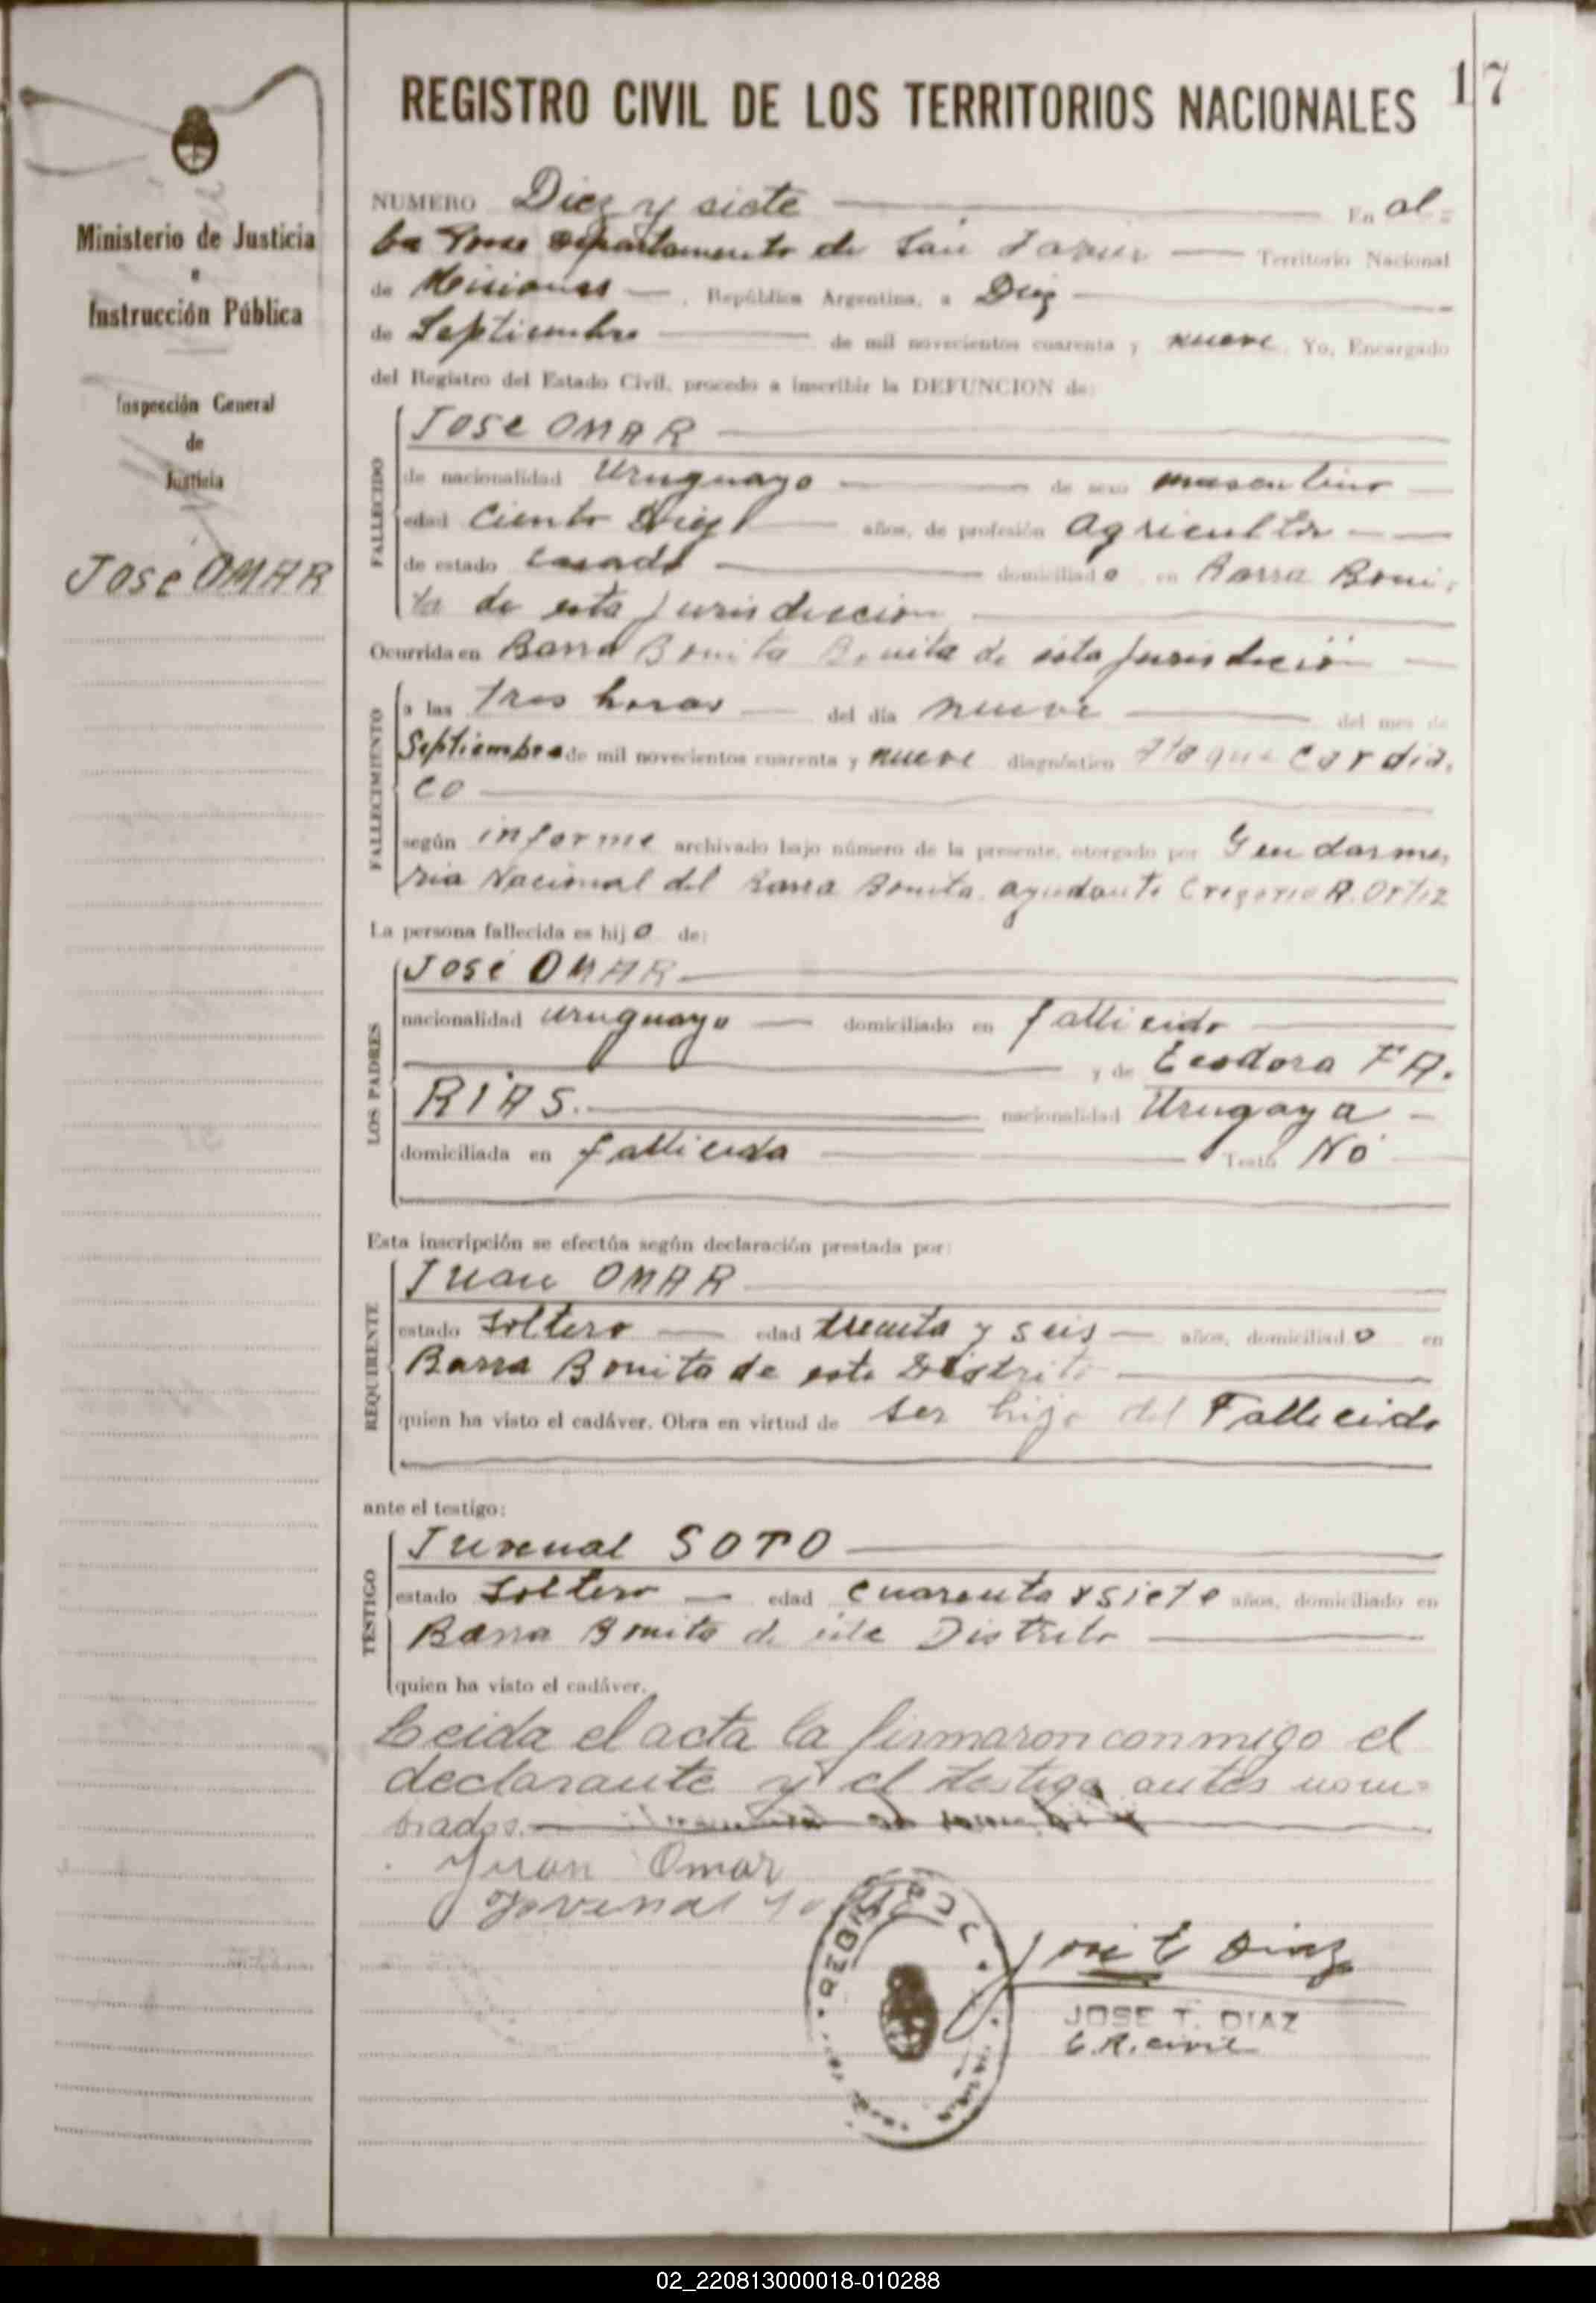 REGISTRO CIVIL DE LOS TERRITORIOS NACIONALES
17
Ministerio de Justicia
e
Instrucción Pública
Inspección General
de
Justicia
José OMAR
NUMERO Diez y siete En al-
ba Posse Departamento de San Javier Territorio Nacional
de Misiones, República Argentina, a Diez
de Septiembre de mil novecientos cuarenta y nueve. Yo, Encargado
del Registro del Estado Civil, procedo a inscribir la DEFUNCION de:
FALLECIDO
Jose OMAR
de nacionalidad Uruguayo de sexo masculino
edad Ciento Diez años, de profesión agricultor
de estado casado domiciliado en Barra Boni-
ta de esta Jurisdiccion
Ocurrida en Barra Bonita Bonita de esta Jurisdicción
FALLECIMIENTO
a las tres horas del día nueve del mes de
Septiembre de mil novecientos cuarenta y nueve diagnóstico Ataque Cardia-
co
según informe archivado bajo número de la presente, otorgado por Gendarme-
ria Nacional del Barra Bonita ayudante Gregorio R. Ortiz
La persona fallecida es hijo de:
LOS PADRES
José OMAR
nacionalidad uruguayo domiciliado en fallicido
y de Teodora FA.
RIAS.
nacionalidad Urugaya
domiciliada en fallicida Testó No
Esta inscripción se efectúa según declaración prestada por:
REQUIRENTE
Juan OMAR
estado Soltero edad treinta y seis años, domiciliado en
Barra Bonita de este Distrito
quien ha visto el cadáver. Obra en virtud de ser hijo del Fallecido
ante el testigo:
TESTIGO
Juvenal SOTO
estado Soltero edad cuarenta y siete años, domiciliado en
Barra Bonita de este Distrito
quien ha visto el cadáver.
Leida el acta la firmaron conmigo el
declarante y el testigo antes nom-
brados.
Juan Omar
Jovenal So
REGIS
Jose T Diaz
JOSE T. DIAZ
E. R. civil
02_220813000018-010288